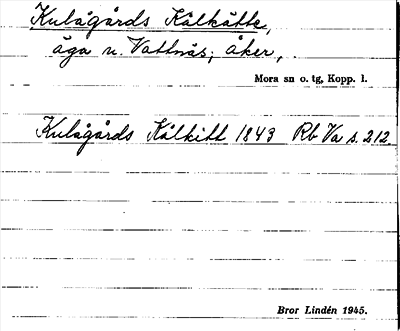 Kulågårds Kålkätte,
äga u. Vattnäs; åker,
Mora sn o. tg, Kopp. l.
Kulågårds Kålkitt 1843 Rb Va s. 212.
Bror Lindén 1945.